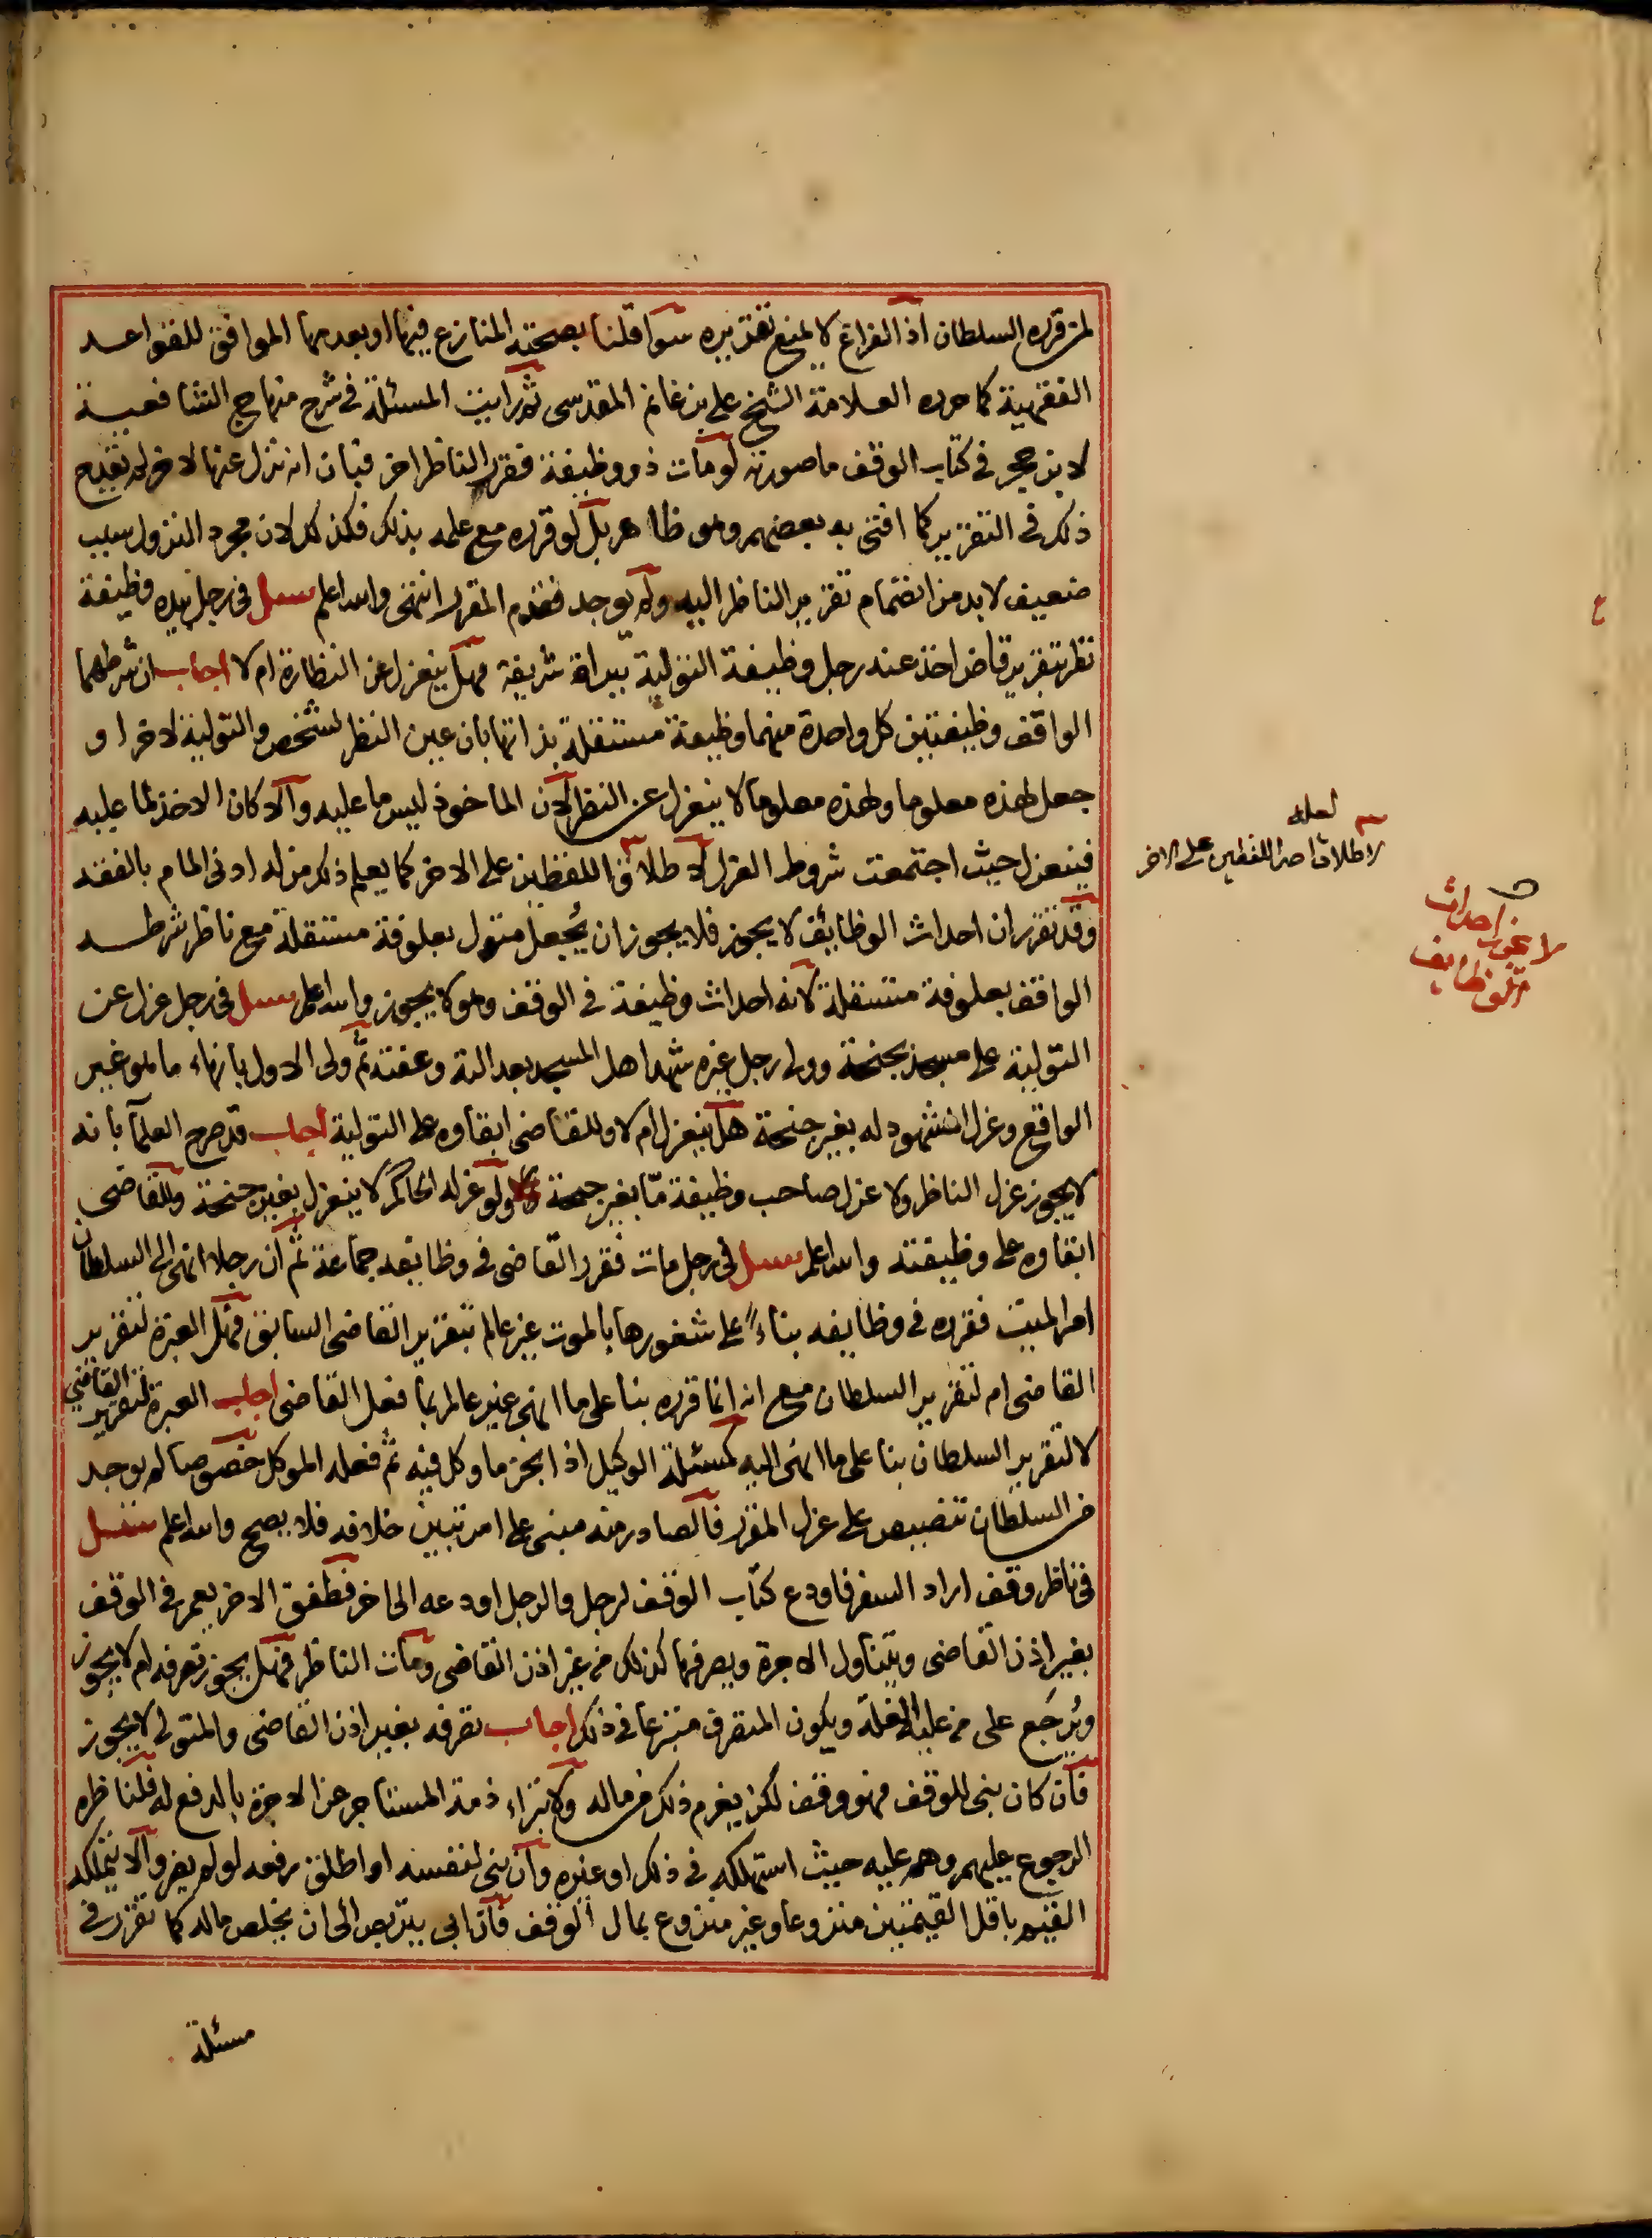 لمن قرره السلطان اذ الفراغ لا يمنع تقريره سوا قلنا بصحته المنازع فيها او بعدمها الموافق للقواعد
الفقهية كما حرره العلامة الشيخ علي بن غانم المقدسي ثم رايت المسئلة في شرح منهاج الشافعية
لابن حجر في كتاب الوقف ما صورته لو مات ذو وظيفة فقرر الناظر اخر فبان انه نزل عنها لاخر لم يقدح
ذلك في التقرير كما افتى به بعضهم وهو ظاهر بل لو قرره مع علمه بذلك فكذلك لان مجرد النزول سبب
ضعيف لا بد من انضمام تقرير الناظر اليه ولم يوجد فقدم المقرر انتهى والله اعلم سئل في رجل بيده وظيفة
نظر بتقرير قاض اخذ عنه رجل وظيفة التولية ببراة شريفة فهل ينعزل عن النظارة ام لا اجاب ان شرطهما
الواقف وظيفتين كل واحدة منهما وظيفة مستقلة بذاتها بان عين النظر لشخص والتولية لاخر او
جعل لهذه معلوما ولهذه معلوما لا ينعزل عن النظر لان الماخوذ ليس ما عليه والا كان الاخذ لما عليه
فينعزل حيث اجتمعت شروط العزل لاطلاق اللفظين على الاخر كما يعلم ذلك من له ادنى المام بالفقه
وقد تقرر ان احداث الوظائف لا يجوز فلا يجوز ان يجعل متول بعلوفة مستقلة مع ناظر شرطه
الواقف بعلوفة مستقلة لانه احداث وظيفة في الوقف وهو لا يجوز والله اعلم سئل في رجل عزل عن
التولية على مسجد بجنحة وولى رجل غيره شهد اهل المسجد بعدالته وعفته ثم ولى الاول بانهاء ما هو غير
الواقع وعزل المشهود له بغير جنحة هل ينعزل ام لا وللقاضي ابقاوه على التولية اجاب قد صرح العلما بانه
لا يجوز عزل الناظر ولا عزل صاحب وظيفة ما بغير جنحة ولو عزله الحاكم لا ينعزل بغير جنحة وللقاضي
ابقاوه على وظيفته والله اعلم سئل في رجل مات فقرر القاضي في وظايفه جماعة ثم ان رجلا انهى الى السلطان
امر الميت فقرره في وظايفه بناء على شغورها بالموت غير عالم بتقرير القاضي السابق فهل العبرة لتقرير
القاضي ام لتقرير السلطان مع انه انما قرره بنا على ما انهى غير عالم بما فعل القاضي اجاب العبرة لتقرير القاضي
لا لتقرير السلطان بنا على ما انهى اليه كمسئلة الوكيل اذا انجز ما وكل فيه ثم فعله الموكل خصوصا لم يوجد
من السلطان تنصيص على عزل المقرر فالصادر منه مبني على امر تبين خلافه فلا يصح والله اعلم سئل
في ناظر وقف اراد السفر فاودع كتاب الوقف لرجل والرجل اودعه الى اخر فطفق الاخر يعمر في الوقف
بغير اذن القاضي ويتناول الاجرة ويصرفها كذلك من غير اذن القاضي ومات الناظر فهل يجوز تصرفه ام لا يجوز
ويرجع على من عليه الغلة ويكون المتصرف متبرعا في ذلك اجاب تصرفه بغير اذن القاضي والمتولي لا يجوز
فان كان بنى للوقف فهو وقف لكن يغرم ذلك من ماله ولا تبراء ذمة المستاجر عن الاجرة بالدفع له فلناظره
الرجوع عليهم وهم عليه حيث استهلكه في ذلك او غيره وان بنى لنفسه او اطلق رفعه لو لم يضر والا يتملكه
القيم باقل القيمتين منزوعا وغير منزوع بمال الوقف فان ابى يتربص الى ان يخلص ماله كما تقرر في
مسئلة
لعله
لاطلاق احد اللفظين على الاخر
لا يجوز احداث
الوظايف